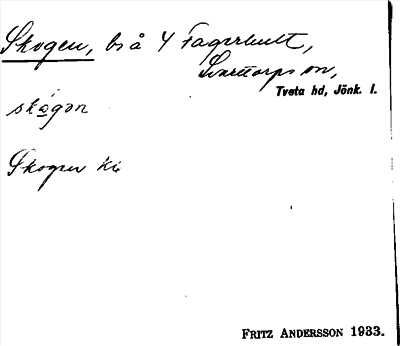 Skogen, bs å 4 Fagerhult,
Svarttorps sn,
Tveta hd, Jönk. l.
skogən
Skogen
FRITZ ANDERSSON 1933.